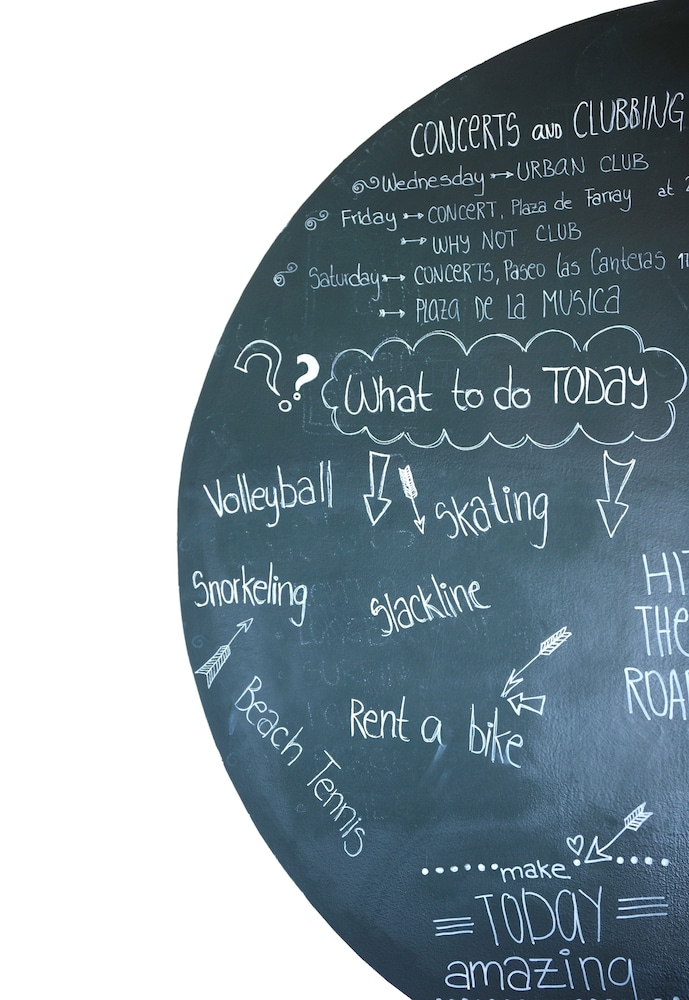 CONCERTS AND CLUBBING
Wednesday URBAN CLUB
Friday CONCERT, Plaza de Farray at
WHY NOT CLUB
Saturday CONCERTS, Paseo las Canteras
PLAZA DE LA MUSICA
?? What to do TODAY
Volleyball
Skating
Snorkeling
Slackline
HIT
THE
ROA
Beach Tennis
Rent a bike
make
TODAY
amazing